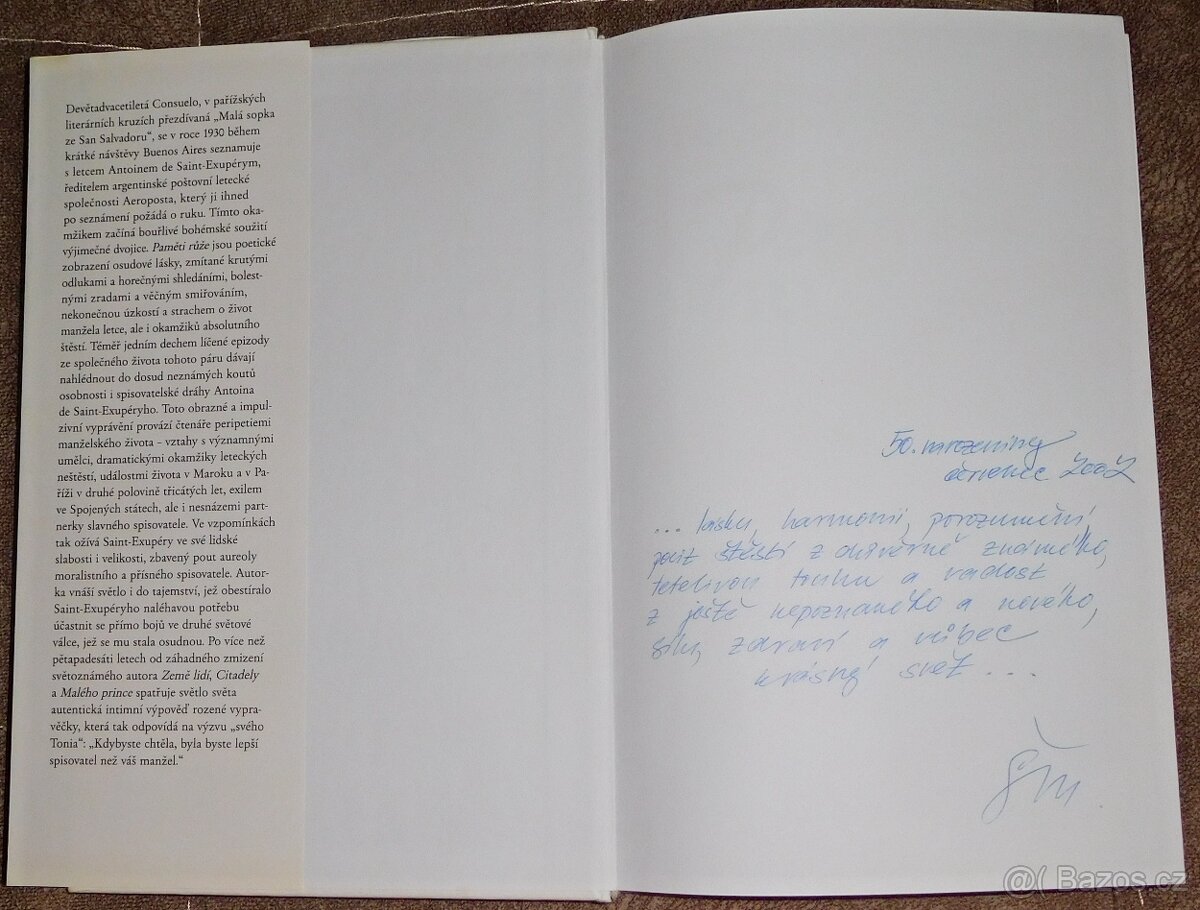 Devětadvacetiletá Consuelo, v pařížských
literárních kruzích přezdívaná „Malá sopka
ze San Salvadoru“, se v roce 1930 během
krátké návštěvy Buenos Aires seznamuje
s letcem Antoinem de Saint-Exupérym,
ředitelem argentinské poštovní letecké
společnosti Aeroposta, který ji ihned
po seznámení požádá o ruku. Tímto oka-
mžikem začíná bouřlivé bohémské soužití
výjimečné dvojice. Paměti růže jsou poetické
zobrazení osudové lásky, zmítané krutými
odlukami a horečnými shledáními, bolest-
nými zradami a věčným smiřováním,
nekonečnou úzkostí a strachem o život
manžela letce, ale i okamžiků absolutního
štěstí. Téměř jedním dechem líčené epizody
ze společného života tohoto páru dávají
nahlédnout do dosud neznámých koutů
osobnosti i spisovatelské dráhy Antoina
de Saint-Exupéryho. Toto obrazné a impul-
zivní vyprávění provází čtenáře peripetiemi
manželského života - vztahy s významnými
umělci, dramatickými okamžiky leteckých
neštěstí, událostmi života v Maroku a v Pa-
říži v druhé polovině třicátých let, exilem
ve Spojených státech, ale i nesnázemi part-
nerky slavného spisovatele. Ve vzpomínkách
tak ožívá Saint-Exupéry ve své lidské
slabosti i velikosti, zbavený pout aureoly
moralistního a přísného spisovatele. Autor-
ka vnáší světlo i do tajemství, jež obestíralo
Saint-Exupéryho naléhavou potřebu
účastnit se přímo bojů ve druhé světové
válce, jež se mu stala osudnou. Po více než
pětapadesáti letech od záhadného zmizení
světoznámého autora Země lidí, Citadely
a Malého prince spatřuje světlo světa
autentická intimní výpověď rozené vypra-
věčky, která tak odpovídá na výzvu „svého
Tonia“: „Kdybyste chtěla, byla byste lepší
spisovatel než váš manžel.“
50. narozeniny
červenec 2002
... lásku, harmonii, porozumění,
pocit štěstí z důvěrně známého,
tetelivou touhu a radost
z ještě nepoznaného a nového,
sílu, zdraví a vůbec
krásný svět ...
@( Bazos.cz